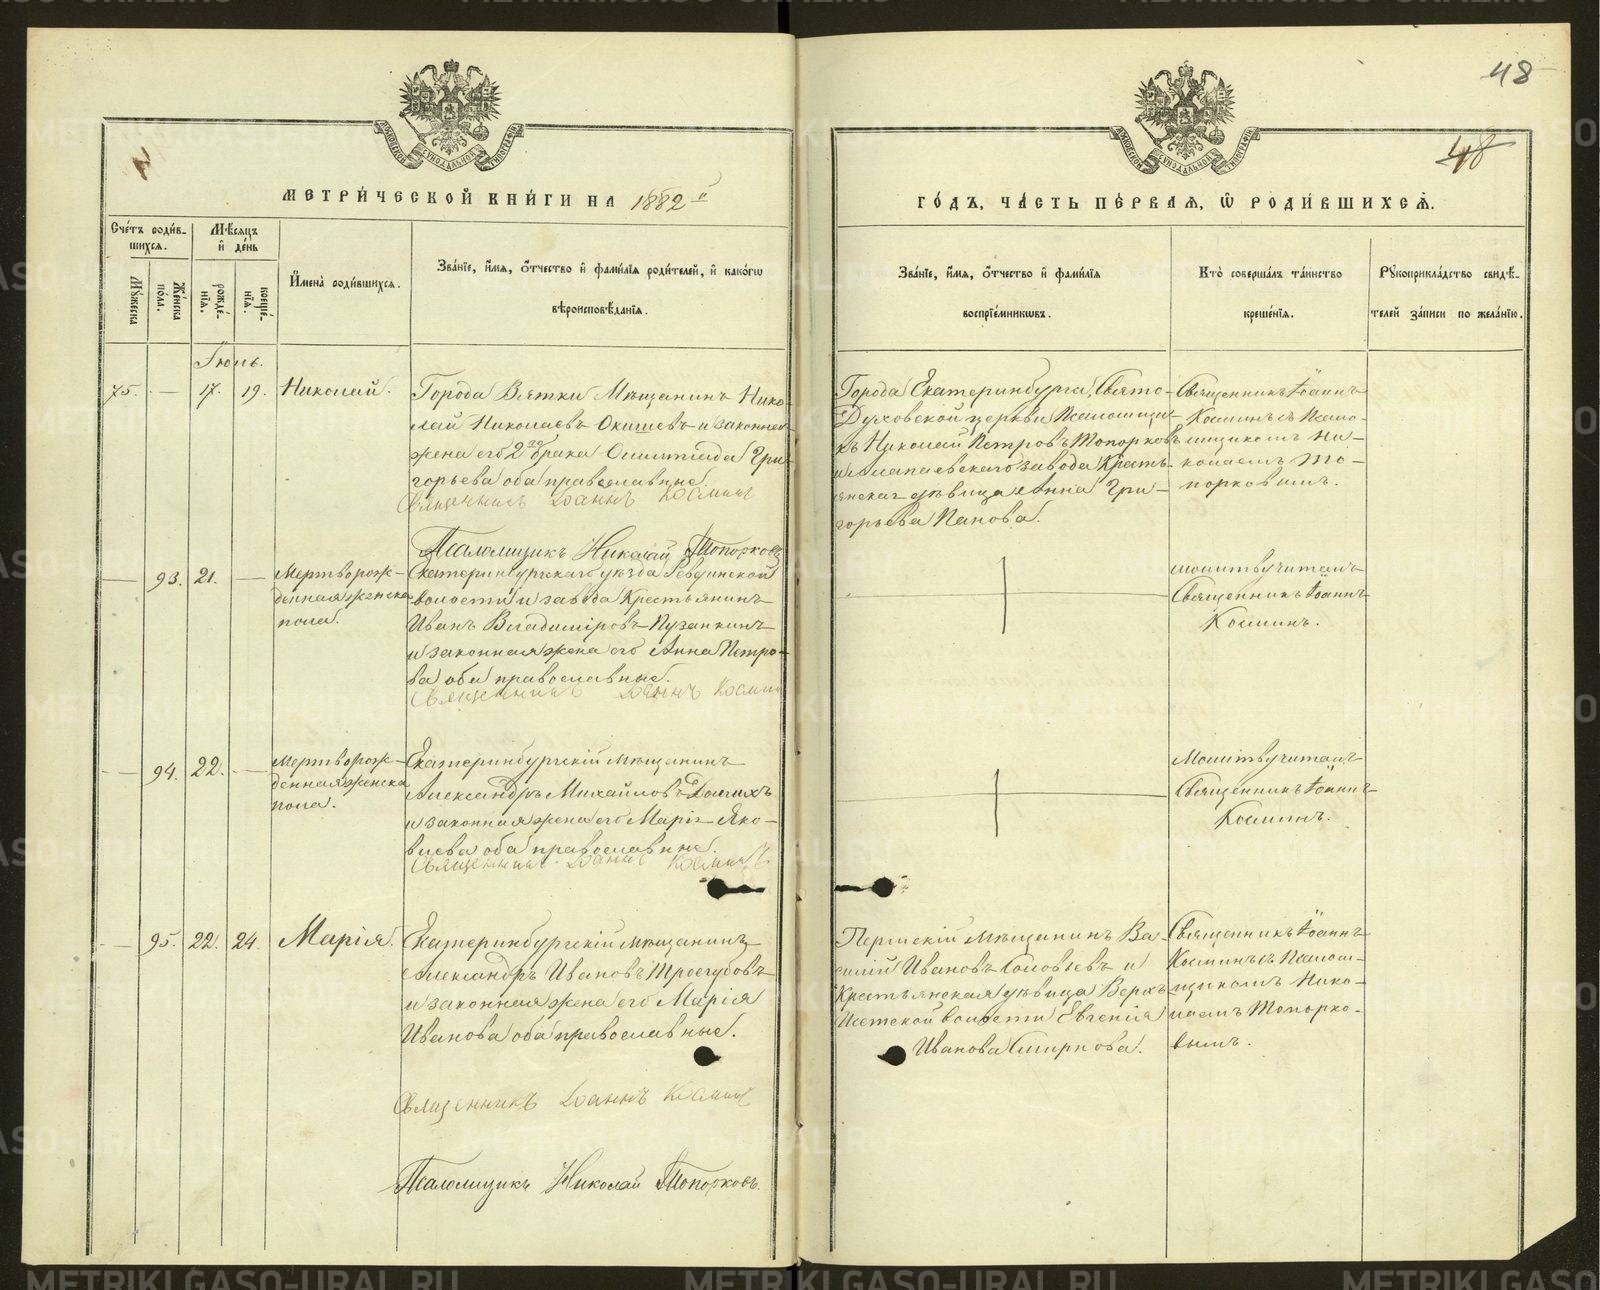 48
48
МЕТРИ́ЧЕСКОЙ КНИ́ГИ НА 1882й
ГО́ДЪ, ЧА́СТЬ ПЕ́РВАѦ, Ѡ РОДИ́ВШИХСѦ.
Сче́тъ роди́в-
шихся.
Мѣ́сяцъ
и де́нь
Му́жеска
Же́нска
по́ла.
рожде́-
нїя.
креще́-
нїя.
И҆мена̀ роди́вшихся.
Зва́нїе, и҆́мя, ѻ҆́тчество и҆ фами́лїя роди́телей, и҆ како́гѡ
вѣроисповѣ́данїя.
Зва́нїе, и҆́мя, ѻ҆́тчество и҆ фами́лїя
воспрїе́мникѡвъ.
Кто̀ соверша́лъ та́инство
креще́нїя.
Рꙋкоприкла́дство свидѣ́-
телей за́писи по жела́нїю.
Іюнь.
75. — 17. 19. Николай.
Города Вятки Мѣщанинъ Нико-
лай Николаевъ Окишевъ и законная
жена его 2го брака Олимпiада Гри-
горьева оба православные.
Священникъ Іоаннъ Косминъ
Псаломщикъ Николай Топорковъ
Города Екатеринбурга, Свято-
Духовской церкви Псаломщи-
къ Николай Петровъ Топорковъ
и Алапаевскаго завода Кресть-
янская дѣвица Анна Гри-
горьева Панова.
Священникъ Іоаннъ
Косминъ съ Псало-
мщикомъ Ни-
колаемъ То-
порковымъ.
— 93. 21. —
Мертворож-
денная женска
пола.
Екатеринбургскаго уѣзда Ревдинской
волости и завода Крестьянинъ
Иванъ Владиміровъ Пузанкинъ
и законная жена его Анна Петро-
ва оба православные.
Священникъ Іоаннъ Косминъ
молитву читалъ
Священникъ Іоаннъ
Косминъ.
— 94. 22. —
Мертворож-
денная женска
пола.
Екатеринбургскій мѣщанинъ
Александръ Михайловъ Долгихъ
и законная жена его Марія Яко-
влева оба православные.
Священникъ Іоаннъ Косминъ
Молитву читалъ
Священникъ Іоаннъ
Косминъ.
— 95. 22. 24. Марія.
Екатеринбургскій мѣщанинъ
Александръ Ивановъ Трегубовъ
и законная жена его Марія
Иванова оба православные.
Священникъ Іоаннъ Косминъ
Псаломщикъ Николай Топорковъ.
Пермскій Мѣщанинъ Ва-
силій Ивановъ Соловьевъ и
Крестьянская дѣвица Верхъ-
Исетской волости Евгенія
Иванова Смирнова.
Священникъ Іоаннъ
Косминъ съ Псалом-
щикомъ Нико-
лаемъ Топорко-
вымъ.
METRIKI.GASO-URAL.RU